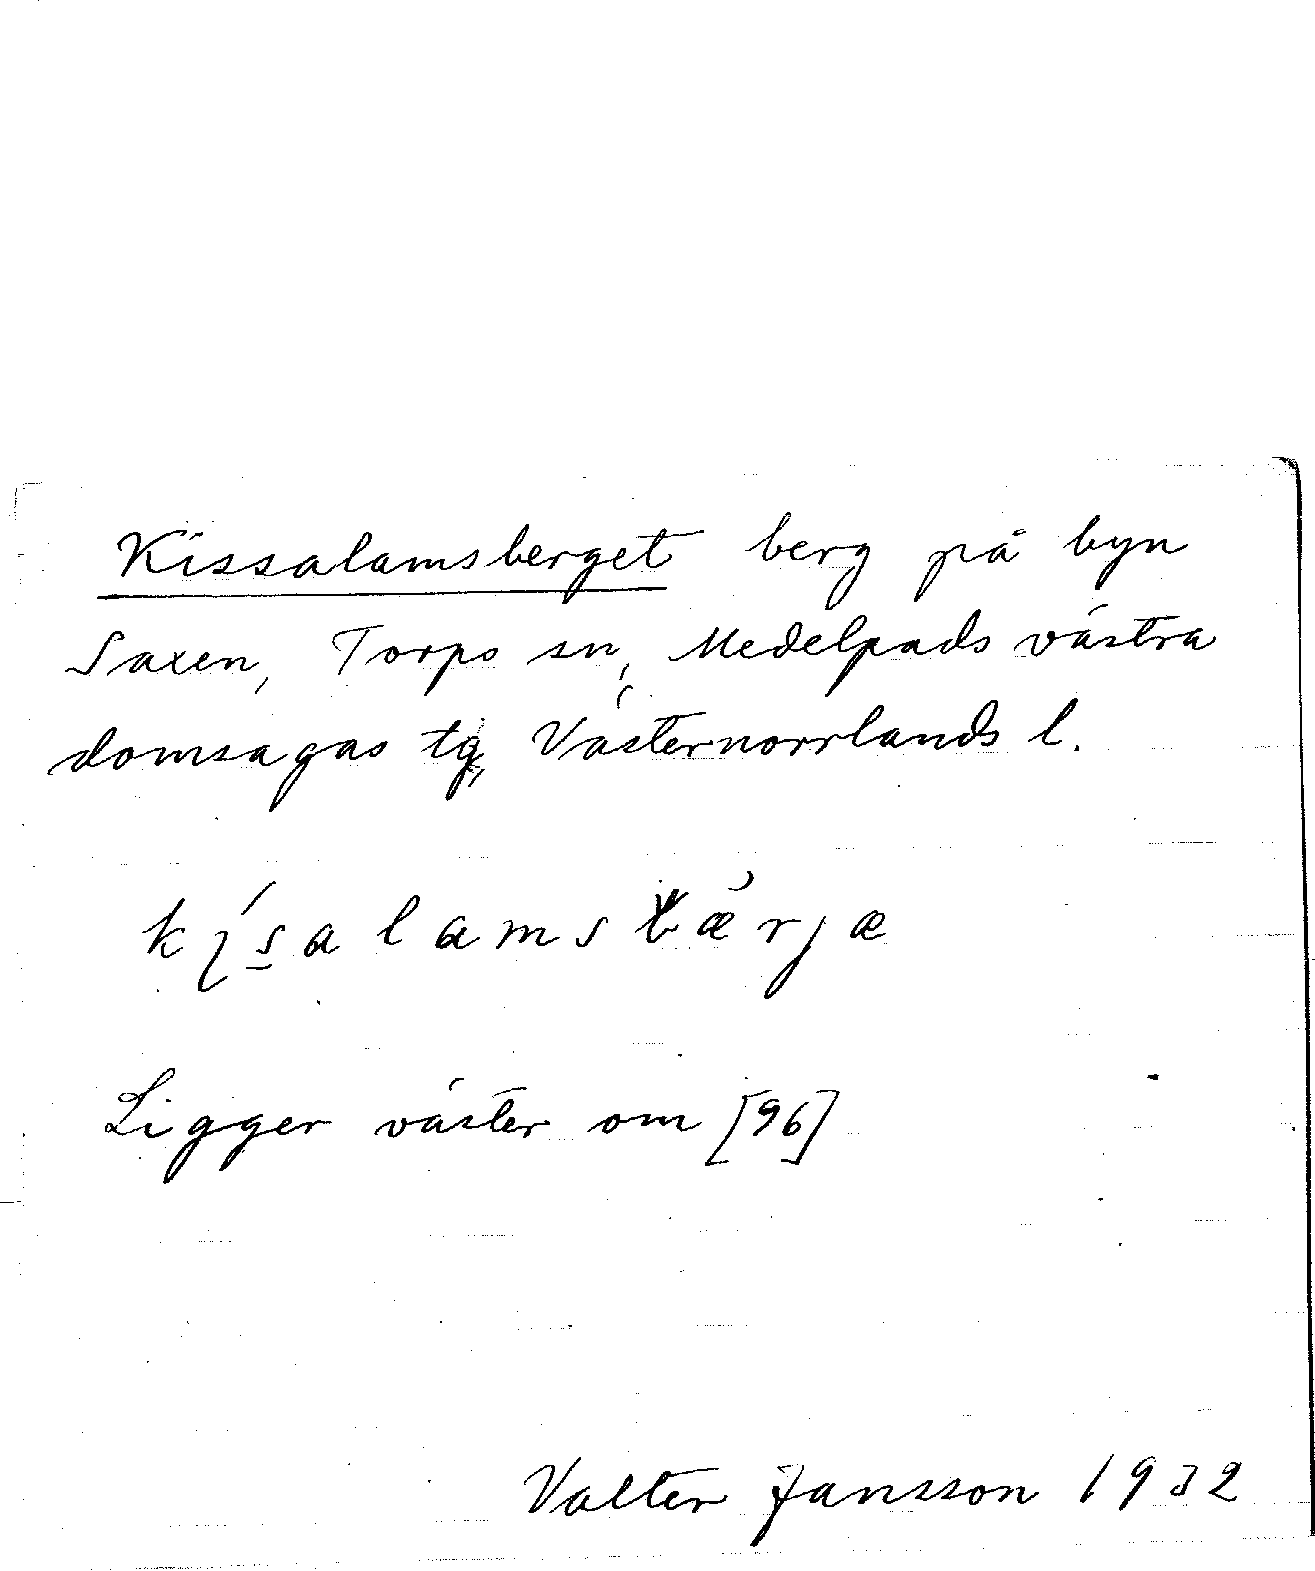 Kissalamsberget berg på byn
Saxen, Torps sn, Medelpads västra
domsagas tg, Västernorrlands l.
kı́salamsbærjæ
Ligger väster om [96]
Valter Jansson 1932